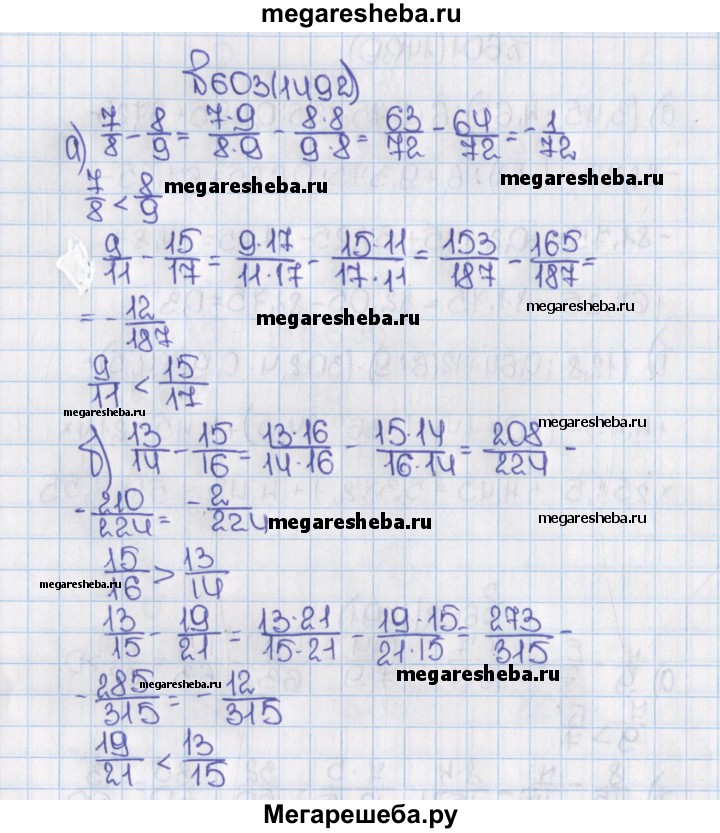 megaresheba.ru
№603(1492)
а) 7/8 - 8/9 = 7·9/8·9 - 8·8/9·8 = 63/72 - 64/72 = - 1/72
7/8 < 8/9
megaresheba.ru
megaresheba.ru
9/11 - 15/17 = 9·17/11·17 - 15·11/17·11 = 153/187 - 165/187 =
= - 12/187
megaresheba.ru
megaresheba.ru
9/11 < 15/17
megaresheba.ru
megaresheba.ru
б) 13/14 - 15/16 = 13·16/14·16 - 15·14/16·14 = 208/224 -
- 210/224 = - 2/224
megaresheba.ru
megaresheba.ru
15/16 > 13/14
megaresheba.ru
13/15 - 19/21 = 13·21/15·21 - 19·15/21·15 = 273/315 -
- 285/315 = - 12/315
megaresheba.ru
megaresheba.ru
19/21 < 13/15
Мегарешеба.ру